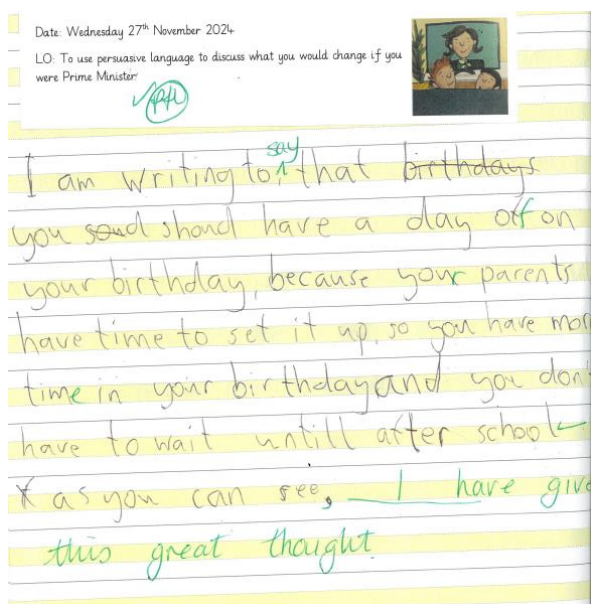 Date: Wednesday 27th November 2024
LO: To use persuasive language to discuss what you would change if you
were Prime Minister
PH
say
I am writing to that birthdays
you soud shoud have a day off on
your birthday, because your parents
have time to set it up, so you have mor
time in your birthday and you don't
have to wait untill after school
as you can see, I have give
this great thought